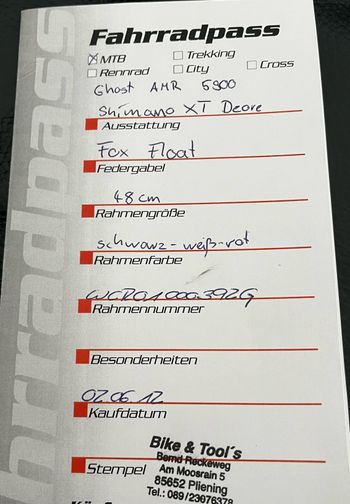 Fahrradpass
☒ MTB ☐ Trekking
☐ Rennrad ☐ City ☐ Cross
Ghost AMR 5900
Shimano XT Deore
Ausstattung
Fox Float
Federgabel
48 cm
Rahmengröße
schwarz-weiß-rot
Rahmenfarbe
Rahmennummer
Besonderheiten
02.06.12
Kaufdatum
Bike & Tool´s
Bernd Reckeweg
Am Moosrain 5
85652 Pliening
Stempel
Tel.: 089/23076378
hrradpass